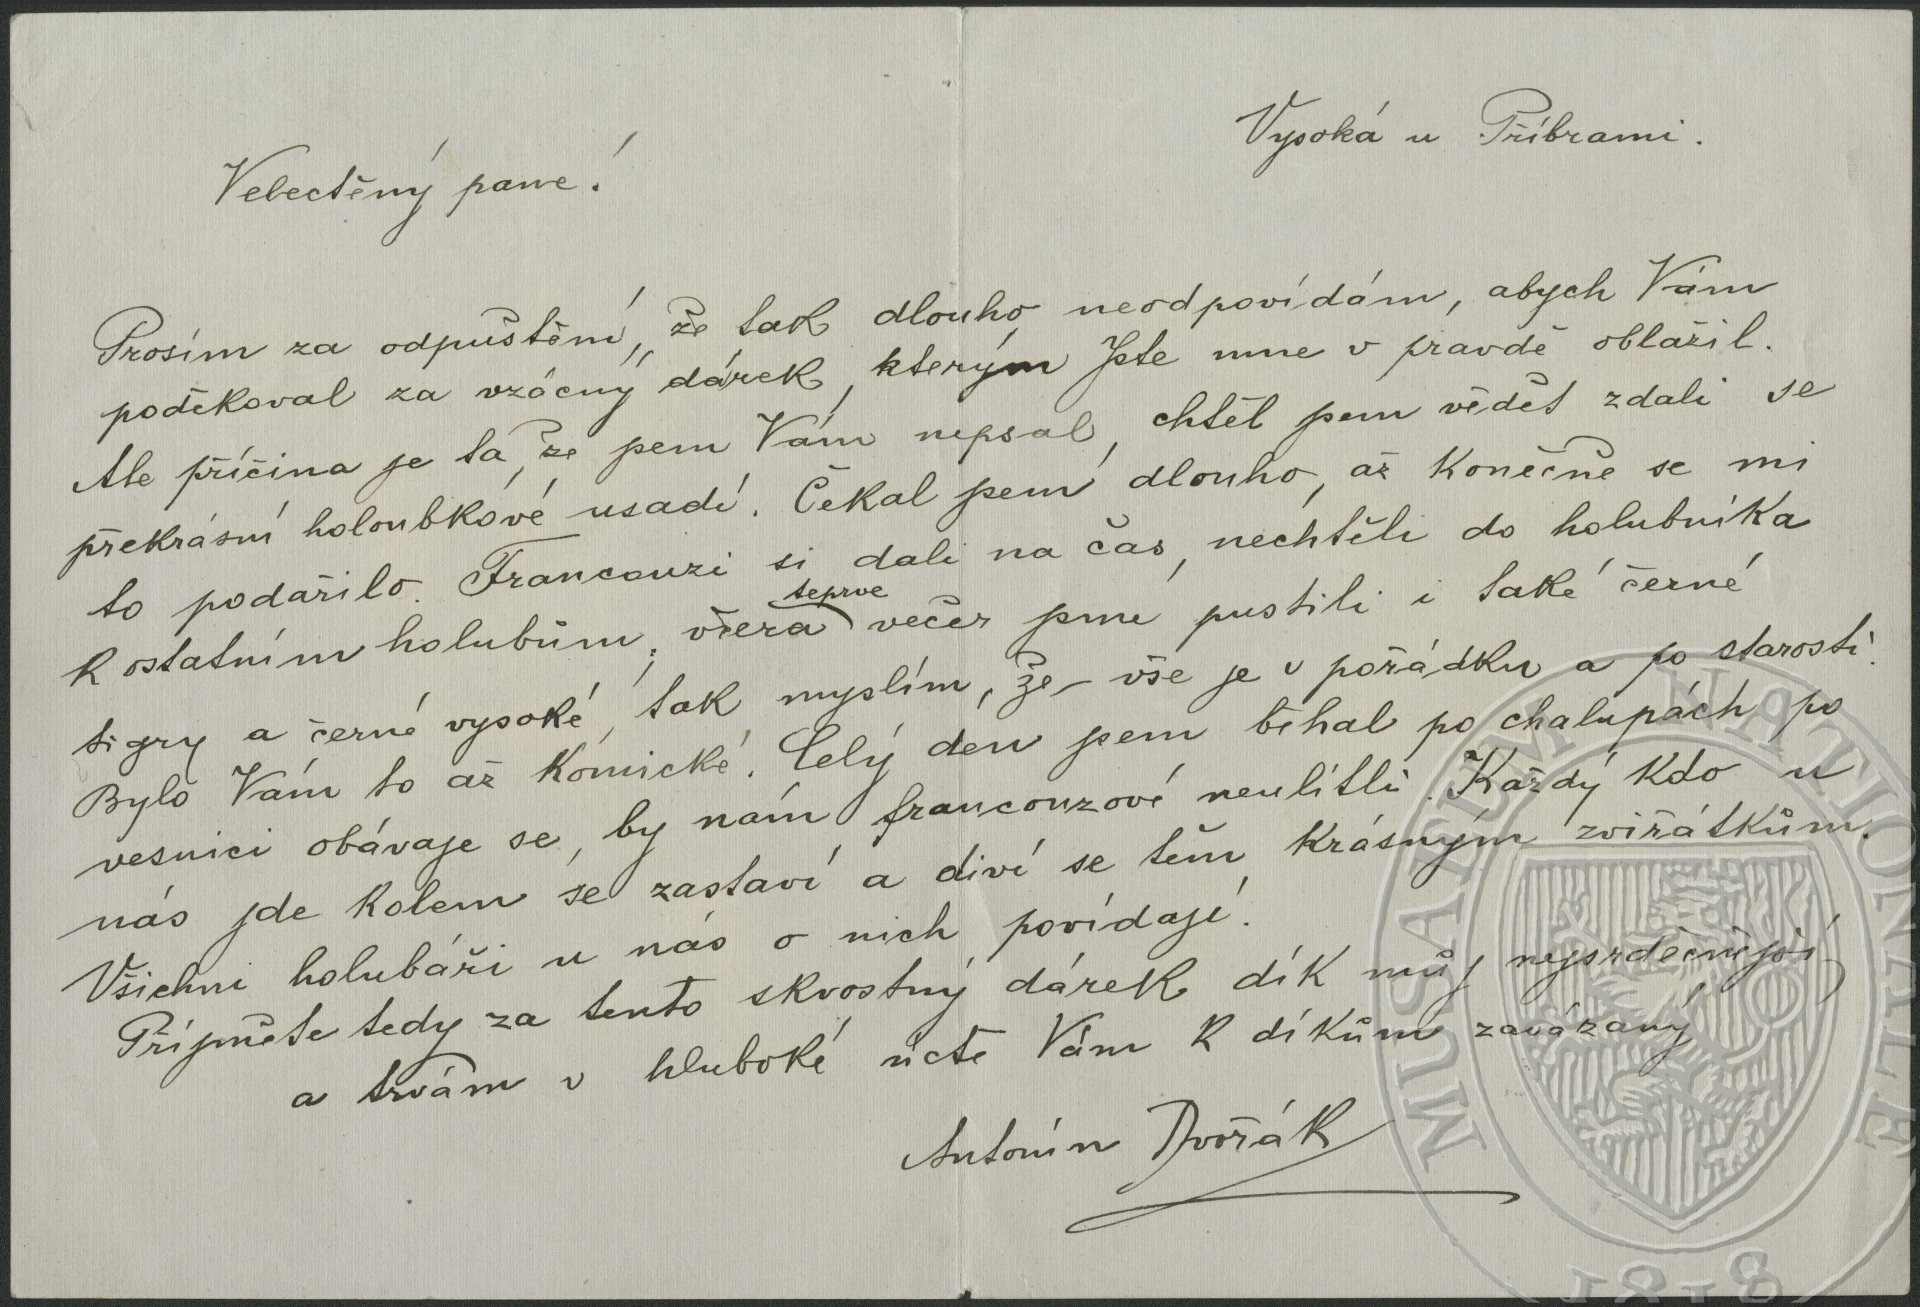 Vysoká u Příbrami.
Velectěný pane!
Prosím za odpuštění, že tak dlouho neodpovídám, abych Vám
poděkoval za vzácný dárek, kterým Jste mne v pravdě oblažil.
Ale příčina je ta, že jsem Vám nepsal, chtěl jsem vědět zdali se
překrásní holoubkové usadí. Čekal jsem dlouho, až konečně se mi
to podařilo. Francouzi si dali na čas, nechtěli do holubníka
k ostatním holubům; včera teprve večer jsme pustili i také černé
tigry a černé vysoké, tak myslím, že vše je v pořádku a po starosti.
Bylo Vám to až komické. Celý den jsem běhal po chalupách po
vesnici obávaje se, by nám francouzové neulítli. Každý kdo u
nás jde kolem se zastaví a diví se těm krásným zvířátkům.
Všichni holubáři u nás o nich povídají.
Přijměte tedy za tento skvostný dárek dík můj nejsrdečnější
a trvám v hluboké úctě Vám k díkům zavázaný
Antonín Dvořák
MUSAEUM NATIONALE
1818